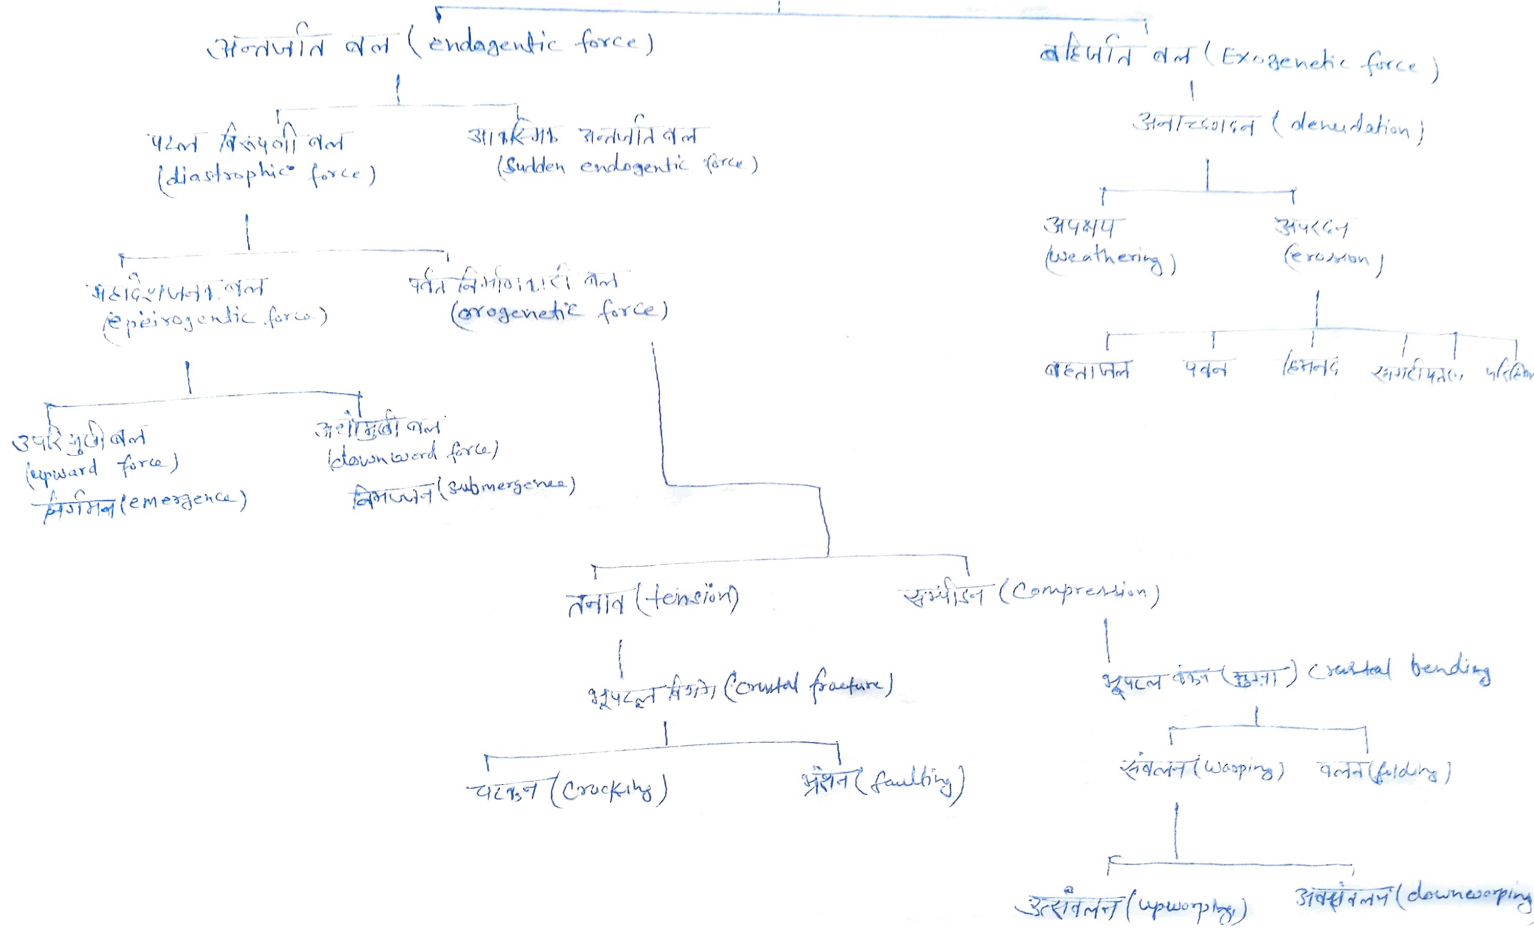 अन्तर्जात बल (endogentic force)
बहिर्जात बल (Exogenetic force)
अनाच्छादन (denudation)
पटल विरूपणी बल
(diastrophic force)
आकस्मिक अन्तर्जात बल
(Sudden endogentic force)
अपक्षय
(weathering)
अपरदन
(erossion)
महादेशजनक बल
(epeirogentic force)
पर्वत निर्माणकारी बल
(orogenetic force)
बहताजल
पवन
हिमनद
उपरिमुखी बल
(upward force)
निर्गमन (emergence)
अधोमुखी बल
(downword force)
निमज्जन (submergence)
तनाव (tension)
सम्पीडन (Compression)
भूपटल विभंग (crustal fracture)
भूपटल वंकन (मुड़ना) crustal bending
चटकन (Cracking)
भ्रंशन (faulting)
संवलन (warping)
वलन (folding)
उत्संवलन (upwarping)
अवसंवलन (downwarping